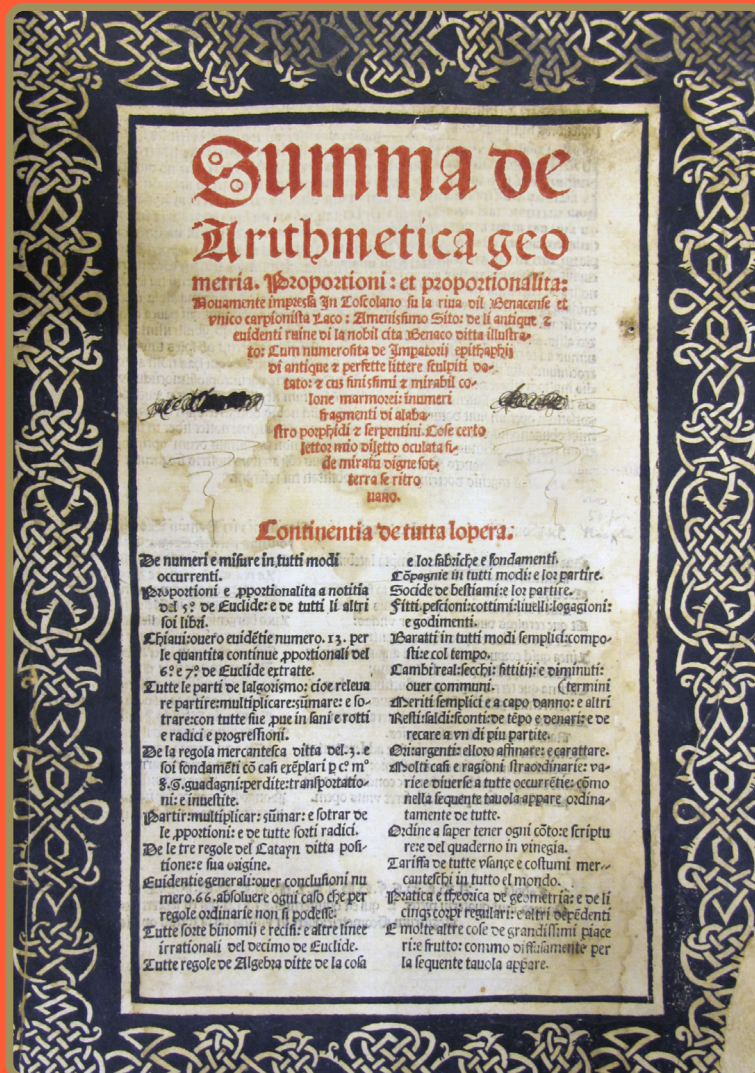 Summa de
Arithmetica geo
metria. Proportioni: et proportionalita:
Nouamente impressa In Toscolano su la riua dil Benacense et
vnico carpionista Laco: Amenissimo Sito: de li antique &
euidenti ruine di la nobil cita Benaco ditta illustra-
to: Cum numerosita de Imperatorij epithaphij
di antique & perfette littere sculpiti do-
tato: & cũ finissimi & mirabil co-
lone marmorei: inumeri
fragmenti di alaba-
stro porphidi & serpentini. Cose certo
lettor mio diletto oculata fi-
de miratu digne sot-
terra se ritro
uano.
Continentia de tutta lopera.
De numeri e misure in tutti modi
occurrenti.
Proportioni e ꝓportionalita a notitia
del 5º de Euclide: e de tutti li altri
soi libri.
Chiaui: ouero euidẽtie numero. 13. per
le quantita continue ꝓportionali del
6º e 7º de Euclide extratte.
Tutte le parti de lalgorismo: cioe releua
re partire: multiplicare: sũmare: e so-
trare: con tutte sue ꝓue in sani e rotti
e radici e progressioni.
De la regola mercantesca ditta del .3. e
soi fondamẽti cõ casi exẽplari ꝑ cº mº
§. G. guadagni: perdite: transportatio-
ni: e inuestite.
Partir: multiplicar: sũmar: e sotrar de
le ꝓportioni: e de tutte sorti radici.
De le tre regole del Catayn ditta posi-
tione: e sua origine.
Euidentie generali: ouer conclusioni nu
mero. 66. absoluere ogni caso che per
regole ordinarie non si podesse.
Tutte sorte binomij e recisi: e altre linee
irrationali del decimo de Euclide.
Tutte regole de Algebra ditte de la cosa
e lor fabriche e fondamenti.
Cõpagnie in tutti modi: e lor partire.
Socide de bestiami: e lor partire.
Fitti: pescioni: cottimi: liuelli: logagioni:
e godimenti.
Baratti in tutti modi semplici: compo-
sti: e col tempo.
Cambi real: secchi: fittitij: e diminuti:
ouer communi. (termini
Meriti semplici e a capo danno: e altri
Resti: saldi: sconti: de tẽpo e denari: e de
recare a vn di piu partite.
Ori: argenti: e lloro affinare: e carattare.
Molti casi e ragioni straordinarie: va-
rie e diuerse a tutte occurrẽtie: cõmo
nella sequente tauola appare ordina-
tamente de tutte.
Ordine a saper tener ogni cõto: e scriptu
re: e del quaderno in vinegia.
Tariffa de tutte vsançe e costumi mer-
canteschi in tutto el mondo.
Pratica e theorica de geometria: e de li
cinq3 corpi regulari: e altri dẽpẽdenti
E molte altre cose de grandissimi piace
ri: e frutto: commo diffusamente per
la sequente tauola appare.